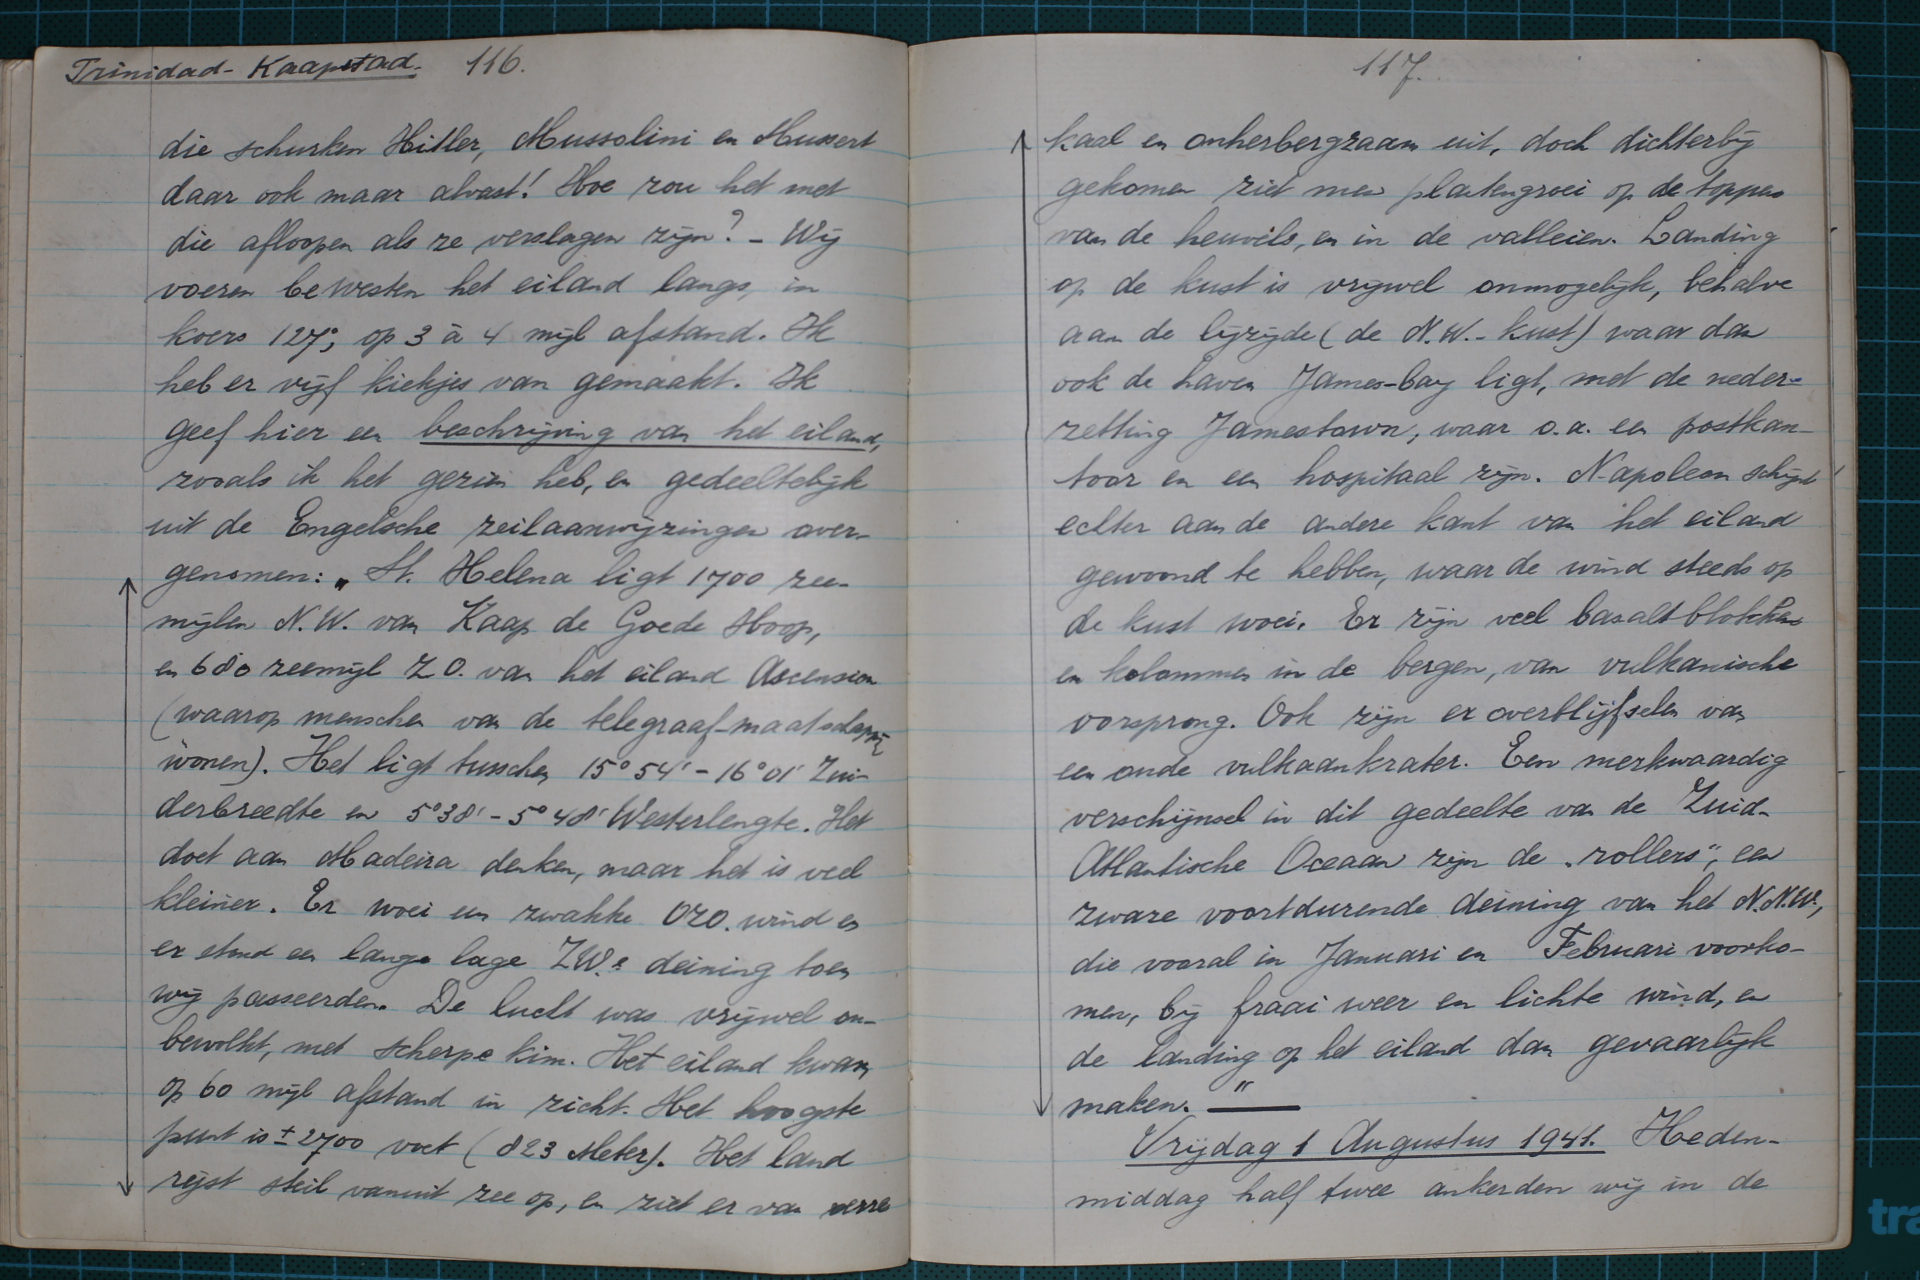 Trinidad - Kaapstad. 116.
die schurken Hitler, Mussolini en Mussert
daar ook maar alvast! Hoe zou het met
die afloopen als ze verslagen zijn? - Wij
voeren bewesten het eiland langs, in
koers 127°, op 3 à 4 mijl afstand. Ik
heb er vijf kiekjes van gemaakt. Ik
geef hier een beschrijving van het eiland,
zooals ik het gezien heb, en gedeeltelijk
uit de Engelsche zeilaanwijzingen over-
genomen: „ St. Helena ligt 1700 zee-
mijlen N.W. van Kaap de Goede Hoop,
en 680 zeemijl Z O. van het eiland Ascension
(waarop menschen van de telegraaf-maatschappij
wonen). Het ligt tusschen 15° 54' - 16° 01' Zui-
derbreedte en 5° 38' - 5° 48' Westerlengte. Het
doet aan Madeira denken, maar het is veel
kleiner. Er woei een zwakke OZO. wind en
er stond een lange lage ZW.e deining toen
wij passeerden. De lucht was vrijwel on-
bewolkt, met scherpe kim. Het eiland kwam
op 60 mijl afstand in zicht. Het hoogste
punt is ± 2700 voet (823 Meter). Het land
rijst steil vanuit zee op, en ziet er van verre
117.
kaal en onherbergzaam uit, doch dichterbij
gekomen ziet men plantengroei op de toppen
van de heuvels, en in de valleien. Landing
op de kust is vrijwel onmogelijk, behalve
aan de lijzijde (de N.W.- kust) waar dan
ook de haven James-bay ligt, met de neder-
zetting Jamestown, waar o.a. een postkan-
toor en een hospitaal zijn. Napoleon schijnt
echter aan de andere kant van het eiland
gewoond te hebben, waar de wind steeds op
de kust woei. Er zijn veel basaltblokken
en kolommen in de bergen, van vulkanische
oorsprong. Ook zijn er overblijfselen van
een oude vulkaankrater. Een merkwaardig
verschijnsel in dit gedeelte van de Zuid-
Atlantische Oceaan zijn de „rollers", een
zware voortdurende deining van het N.N.W.,
die vooral in Januari en Februari voorko-
men, bij fraai weer en lichte wind, en
de landing op het eiland dan gevaarlijk
maken. "
Vrijdag 1 Augustus 1941. Heden-
middag half twee ankerden wij in de